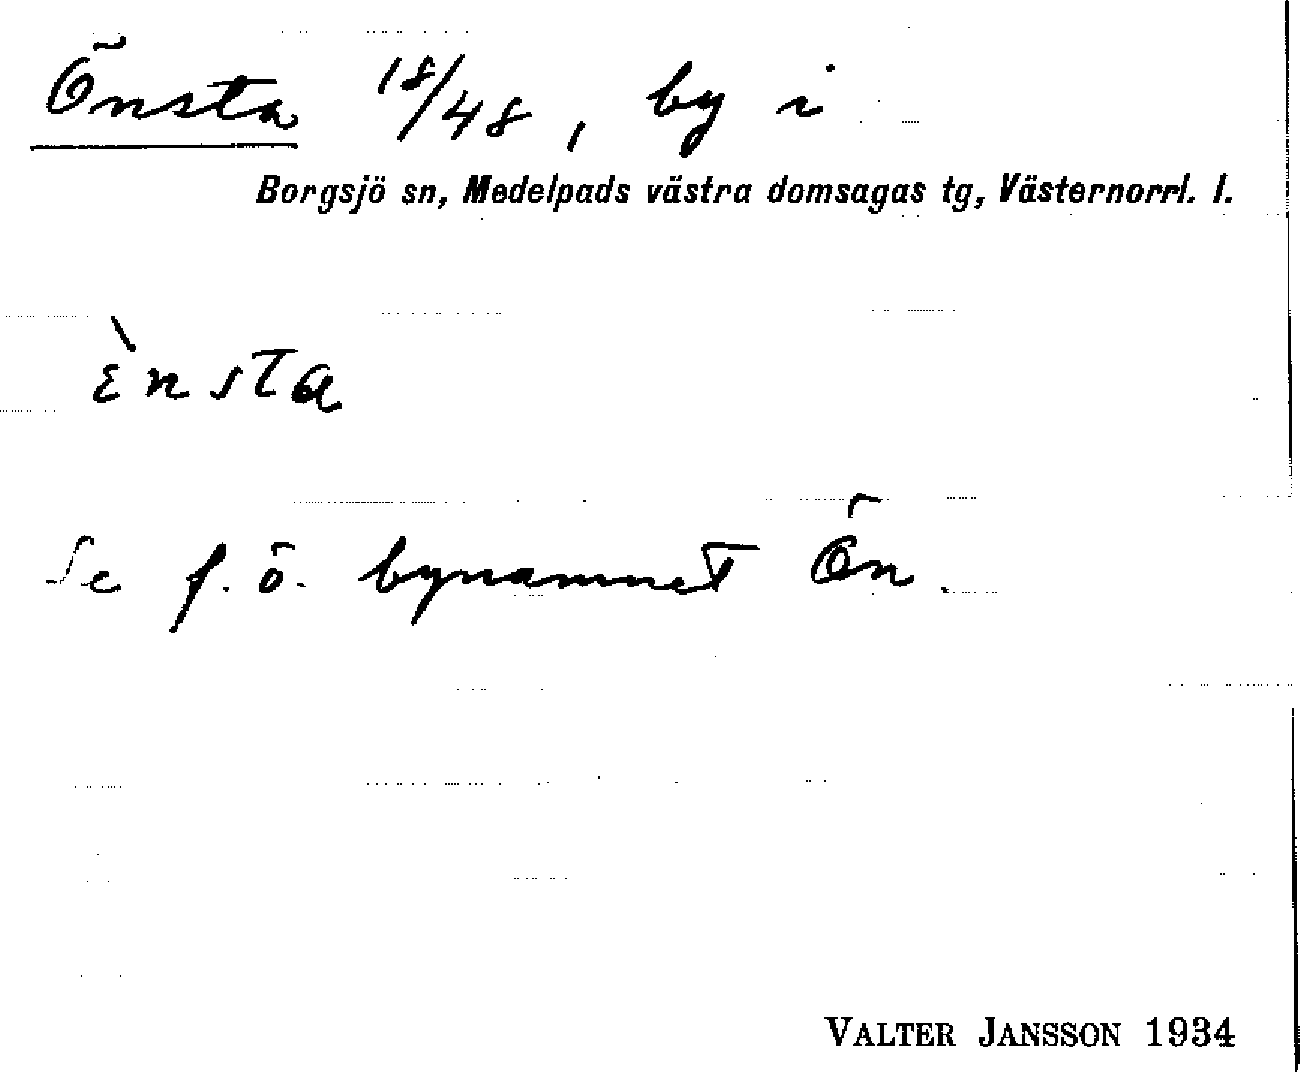 Önsta 18/48, by i
Borgsjö sn, Medelpads västra domsagas tg, Västernorrl. l.
ὲnsta
Se f. ö. bynamnet Ön.
VALTER JANSSON 1934